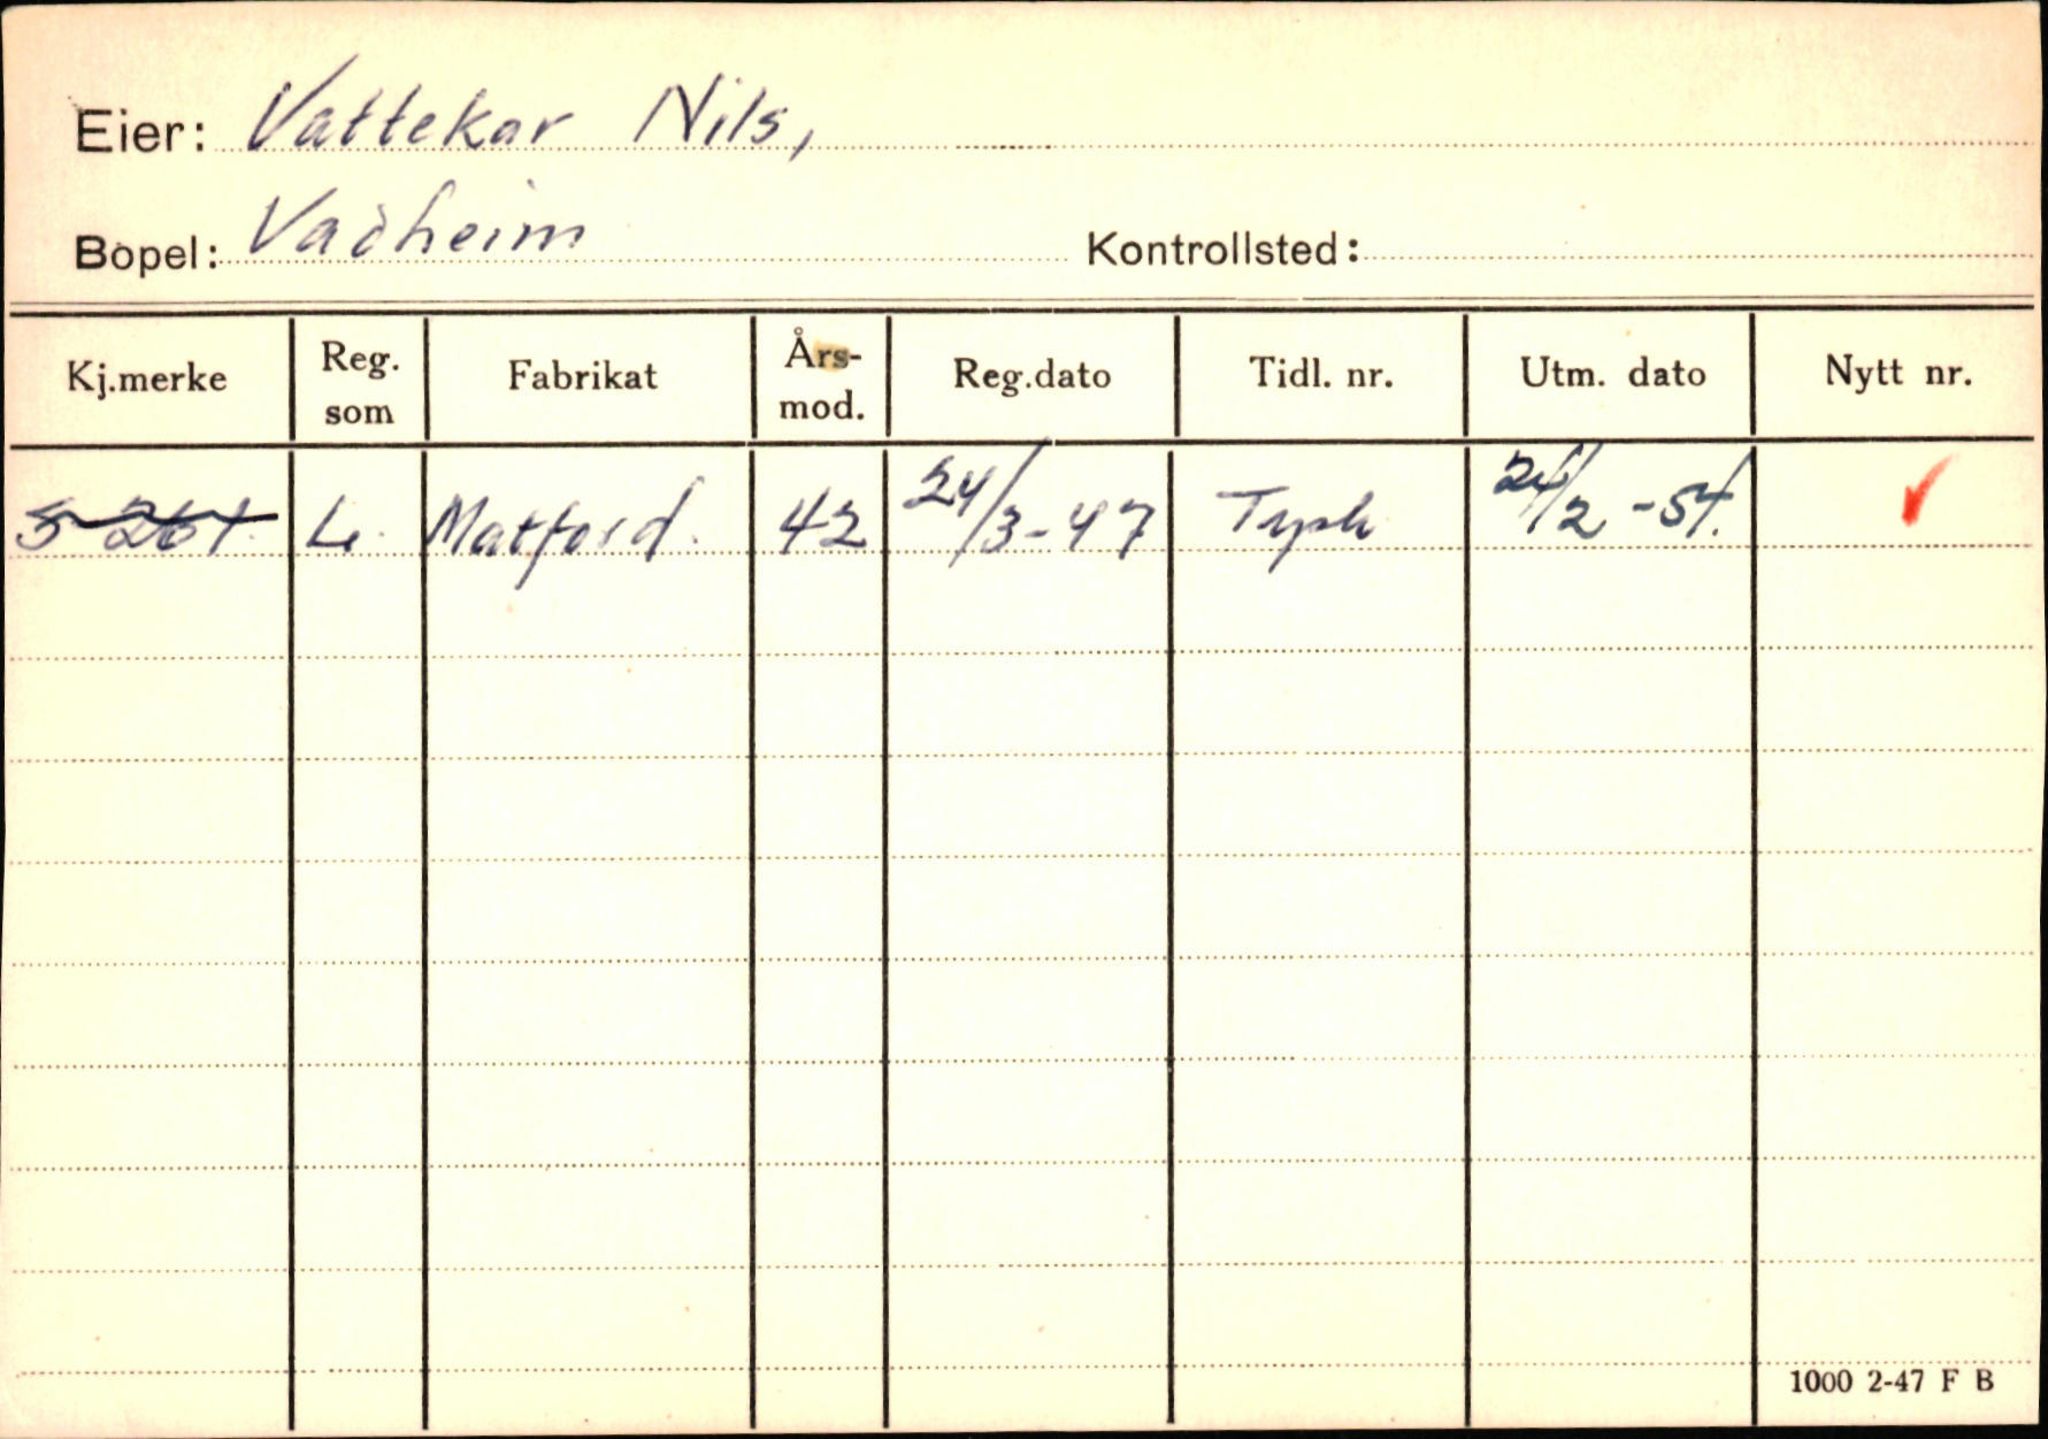 Eier: Vattekar Nils,
Bopel: Vadheim Kontrollsted:
Kj.merke Reg. som Fabrikat Års-mod. Reg.dato Tidl. nr. Utm. dato Nytt nr.
S-264. L. Matford. 42 24/3-47 Tysk 24/2-54. ✓
1000 2-47 F B